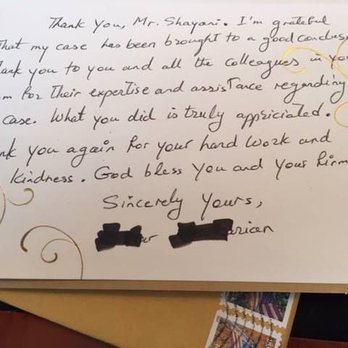 Thank you, Mr. Shayani. I'm grateful
that my case has been brought to a good conclus
hank you to you and all the colleagues in you
m for their expertise and assistance regarding
case. What you did is truly appriciated.
nk you again for your hard work and
kindness. God bless you and your firm
Sincerely Yours,